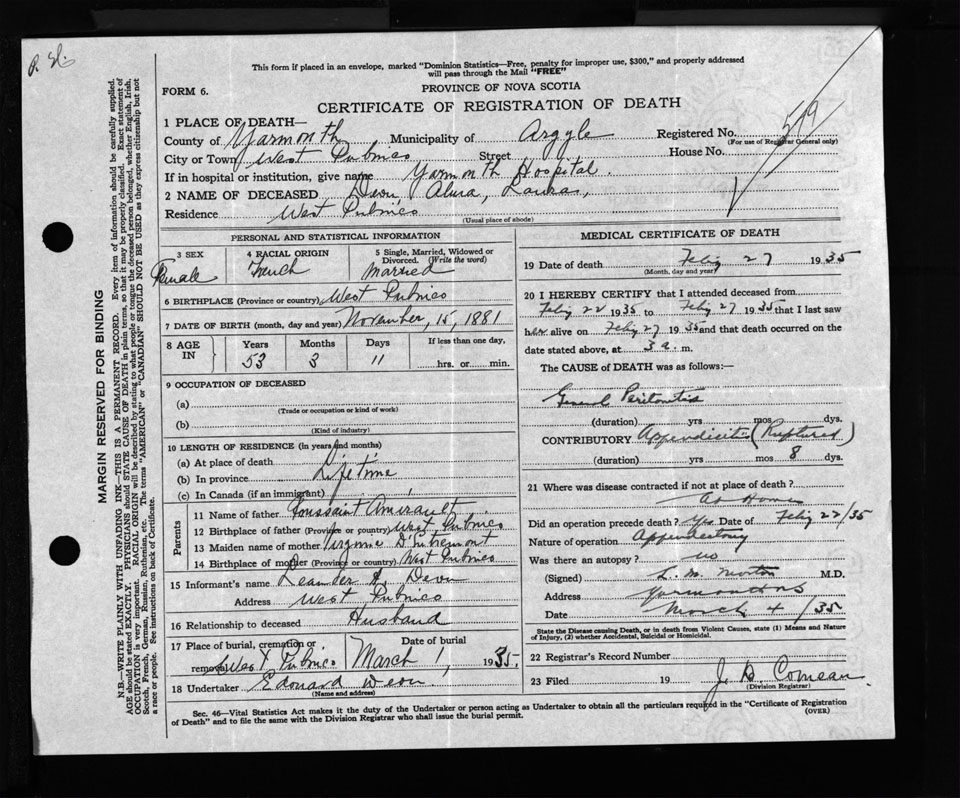 R.H.
This form if placed in an envelope, marked "Dominion Statistics—Free, penalty for improper use, $300," and properly addressed
will pass through the Mail "FREE"
FORM 6.
PROVINCE OF NOVA SCOTIA
CERTIFICATE OF REGISTRATION OF DEATH
519
1 PLACE OF DEATH—
County of Yarmouth Municipality of Argyle Registered No.
(For use of Registrar General only)
City or Town West Pubnico Street House No.
If in hospital or institution, give name Yarmouth Hospital.
2 NAME OF DECEASED Deon Alma, Laura,
Residence West Pubnico
(Usual place of abode)
PERSONAL AND STATISTICAL INFORMATION
3 SEX Female
4 RACIAL ORIGIN French
5 Single, Married, Widowed or Divorced. (Write the word) Married
6 BIRTHPLACE (Province or country) West Pubnico
7 DATE OF BIRTH (month, day and year) November, 15, 1881
8 AGE IN Years 53 Months 3 Days 11 If less than one day, hrs. or min.
9 OCCUPATION OF DECEASED
(a)
(Trade or occupation or kind of work)
(b)
(Kind of industry)
10 LENGTH OF RESIDENCE (in years and months)
(a) At place of death
(b) In province Life time
(c) In Canada (if an immigrant)
Parents
11 Name of father Toussaint Amirault
12 Birthplace of father (Province or country) West Pubnico
13 Maiden name of mother Virginie D'Entremont
14 Birthplace of mother (Province or country) West Pubnico
15 Informant's name Leander A. Deon
Address West Pubnico
16 Relationship to deceased Husband
17 Place of burial, cremation or removal West Pubnico
Date of burial March 1, 1935.
18 Undertaker Edouard Deon
(Name and address)
MEDICAL CERTIFICATE OF DEATH
19 Date of death Feby 27 1935
(Month, day and year)
20 I HEREBY CERTIFY that I attended deceased from
Feby 22 1935 to Feby 27 1935 that I last saw
her alive on Feby 27 1935 and that death occurred on the
date stated above, at 3 a. m.
The CAUSE of DEATH was as follows:—
General Peritonitis
(duration) yrs mos dys.
CONTRIBUTORY Appendicitis (Ruptured)
(duration) yrs mos 8 dys.
21 Where was disease contracted if not at place of death?
At Home
Did an operation precede death? Yes Date of Feby 22/35
Nature of operation Appendectomy
Was there an autopsy? no
(Signed) L. M. Morton M.D.
Address Yarmouth NS
Date March 4/35
State the Disease causing Death, or in death from Violent Causes, state (1) Means and Nature
of Injury, (2) whether Accidental, Suicidal or Homicidal.
22 Registrar's Record Number
23 Filed 19 J. D. Comeau.
(Division Registrar)
Sec. 46—Vital Statistics Act makes it the duty of the Undertaker or person acting as Undertaker to obtain all the particulars required in the "Certificate of Registration
of Death" and to file the same with the Division Registrar who shall issue the burial permit.
(OVER)
MARGIN RESERVED FOR BINDING
N.B.—WRITE PLAINLY WITH UNFADING INK—THIS IS A PERMANENT RECORD. Every item of information should be carefully supplied.
AGE should be stated EXACTLY. PHYSICIANS should STATE CAUSE OF DEATH in plain terms, so that it may be properly classified. Exact statement of
OCCUPATION is very important. RACIAL ORIGIN will be described by stating to what people or tongue the deceased person belonged, whether English, Irish,
Scotch, French, German, Russian, Ruthenian, etc. The terms "AMERICAN" or "CANADIAN" SHOULD NOT BE USED as they express citizenship but not
a race or people. See instructions on back of Certificate.